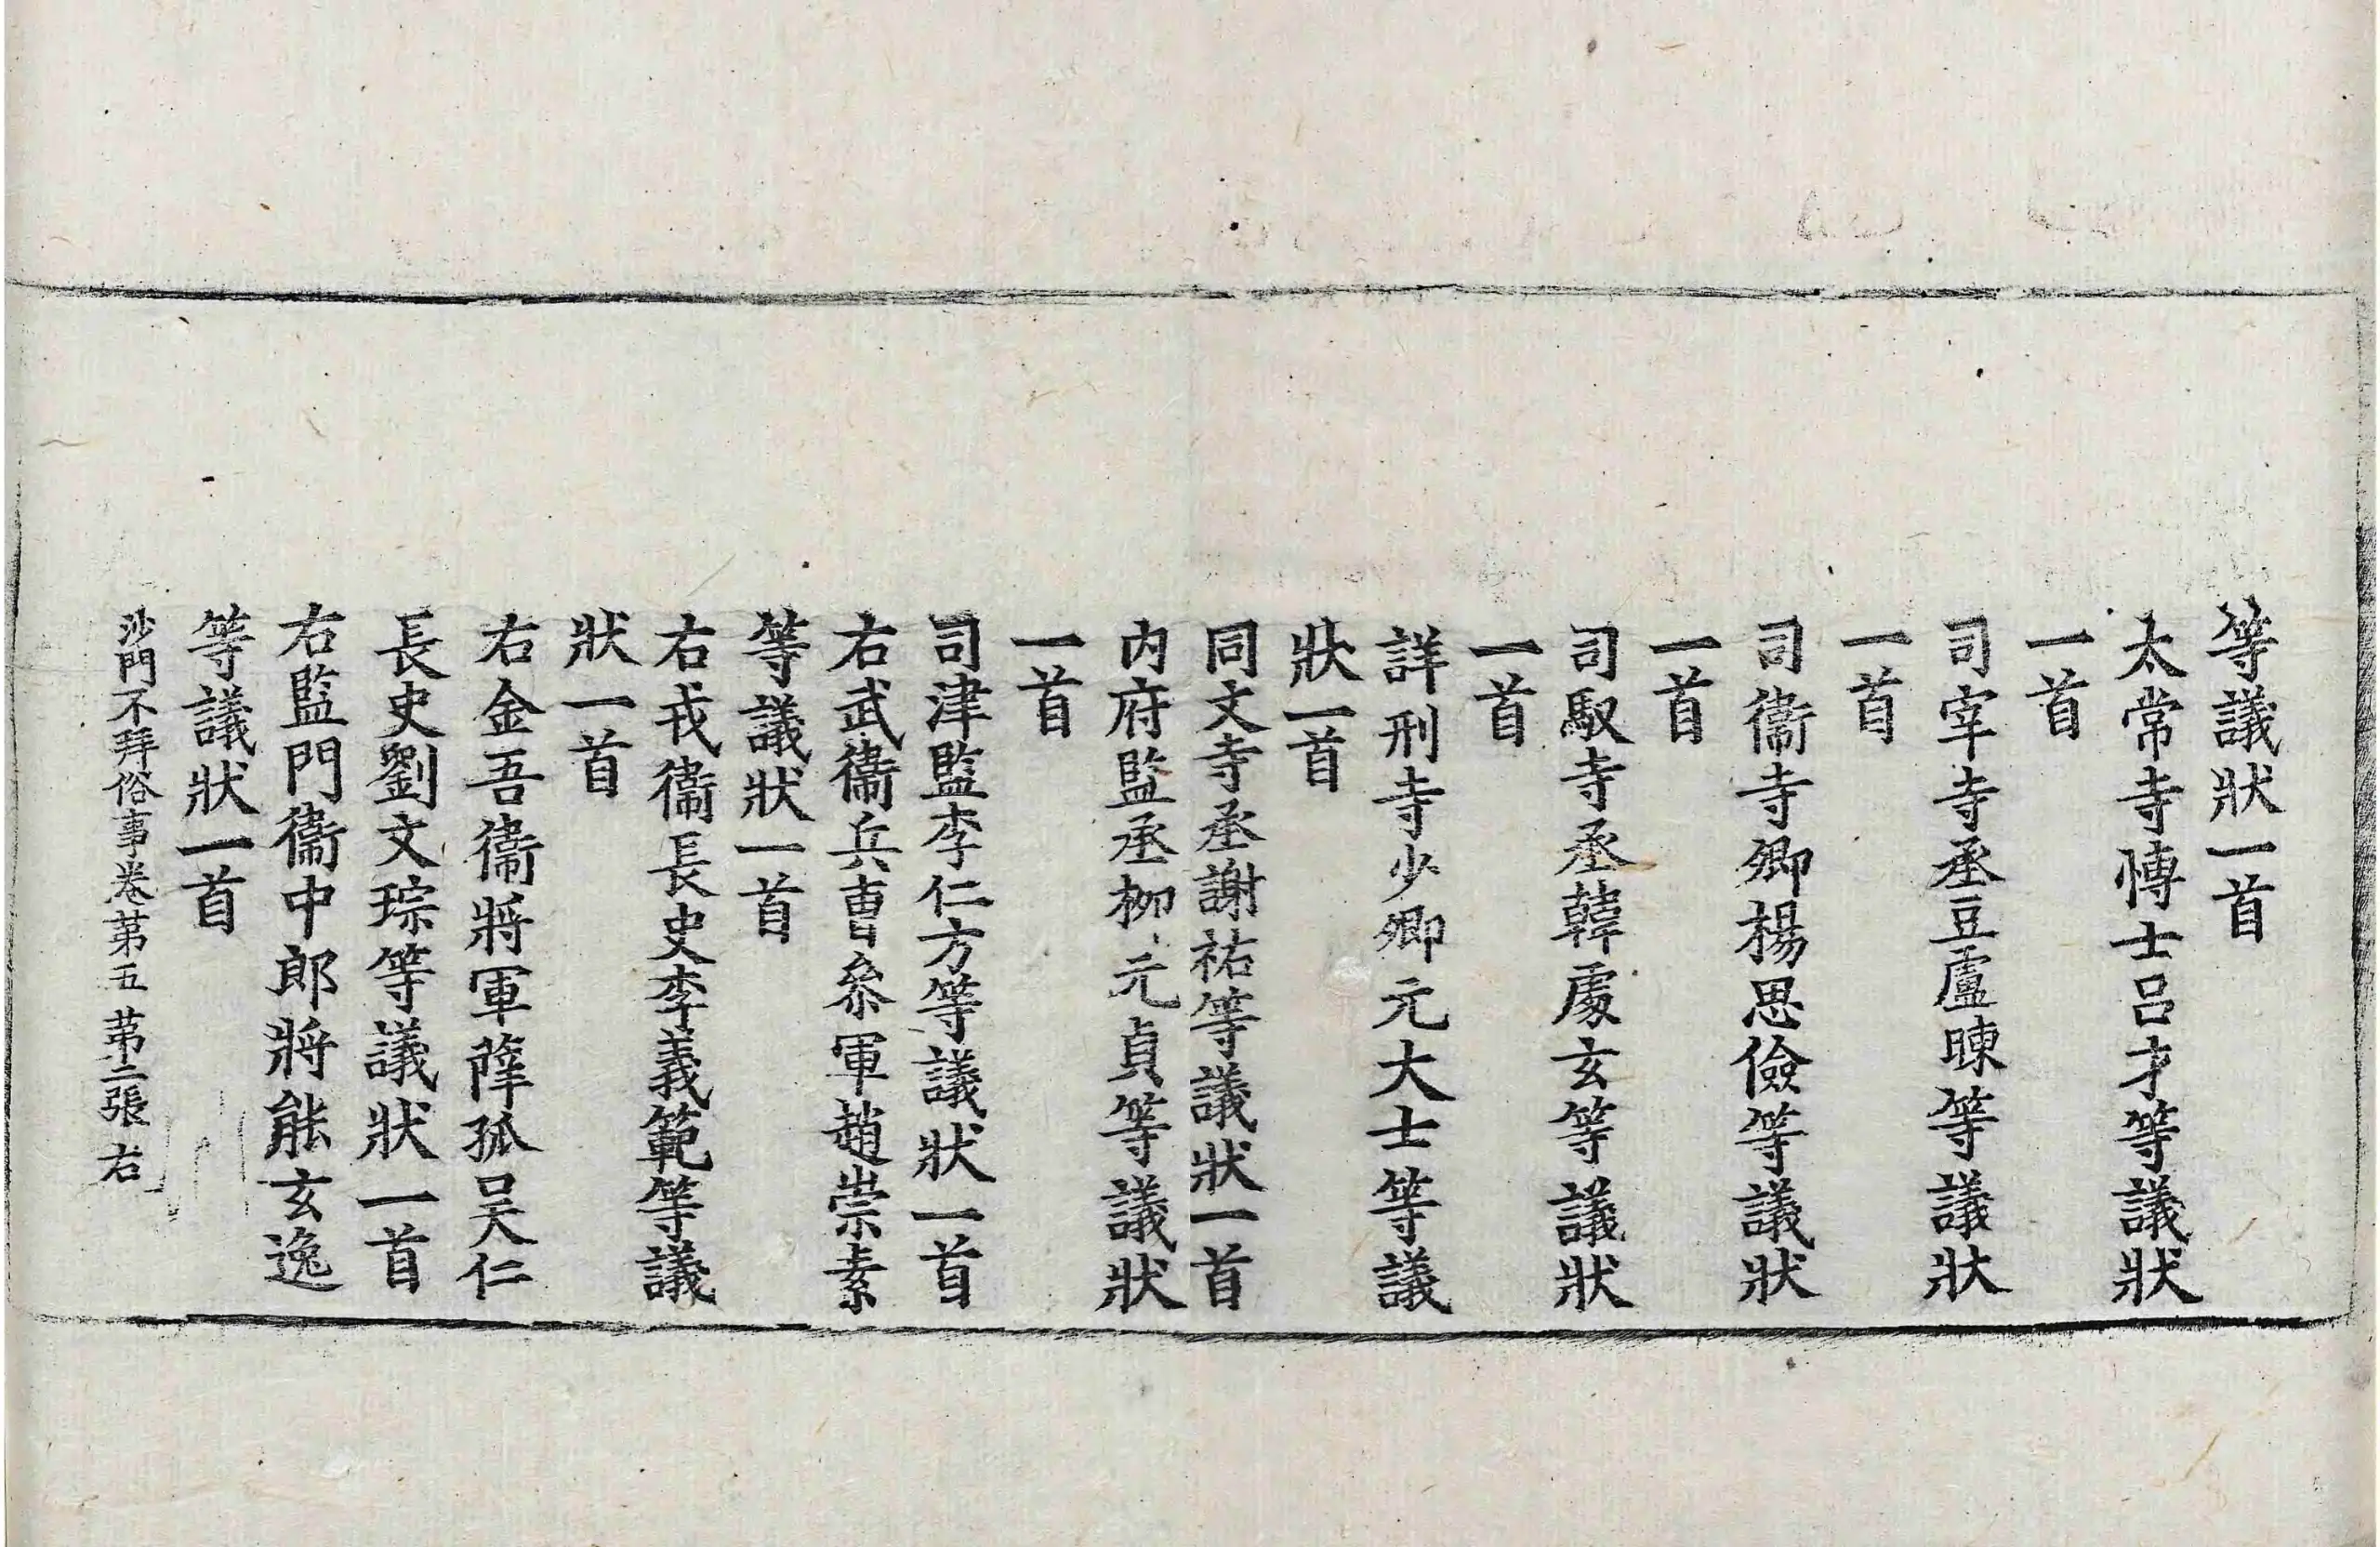 等議狀一首
太常寺愽士吕才等議狀
一首
司宰寺丞豆盧暕等議狀
一首
司衞寺卿楊思儉等議狀
一首
司馭寺丞韓處玄等議狀
一首
詳刑寺少卿元大士等議
狀一首
同文寺丞謝祐等議狀一首
内府監丞柳元貞等議狀
一首
司津監李仁方等議狀一首
右武衞兵曹叅軍趙崇素
等議狀一首
右戎衞長史李義範等議
狀一首
右金吾衞將軍薛孤吴仁
長史劉文琮等議狀一首
右監門衞中郎將能玄逸
等議狀一首
沙門不拜俗事卷苐五 苐二張 右